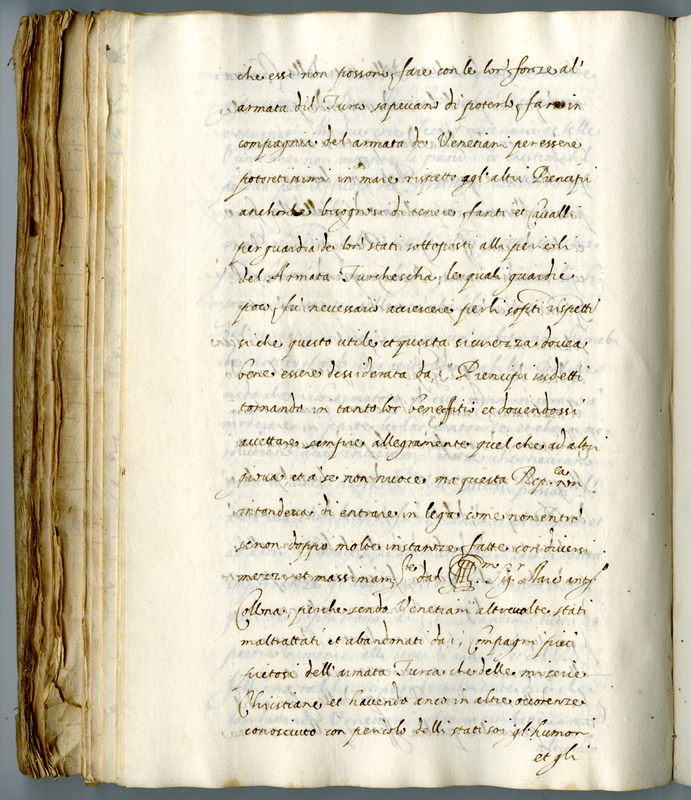 che essi non possono fare con le lor forze al'
armata dil Turco sapevano di poterlo far in
compagnia del armata de Venetiani per essere
potentissimi in mare rispetto agl'altri Prencipi
anchorche bisognosi di tenere fanti et Cavalli
per guardia de lor stati sottoposti alli pericoli
del Armata Turchescha, le quali guardie
poco fù necessario accrescere per li sop.ti rispetti
si che questo utile et questa sicurezza dovea
bene essere dessiderata da i Prencipi sudetti
tornando in tanto lor benefitio et dovendossi
accettare sempre allegramente quel che ad altri
giova et a se non nuoce ma questa Rep.ca non
intendeva di entrare in lega come non entrò
senon doppo molte instanze fatte con diversi
mezzi et massimam.te dal Ill.mo Sig.r Marc' ant.o
Collona perche sendo Venetiani altrevolte stati
maltrattati et abandonati da i Compagni piu
pietosi dell'armata Turca che delle miserie
Christiane et havendo anco in altre occorenze
conosciuto con pericolo delli stati soi gl'humori
et gli